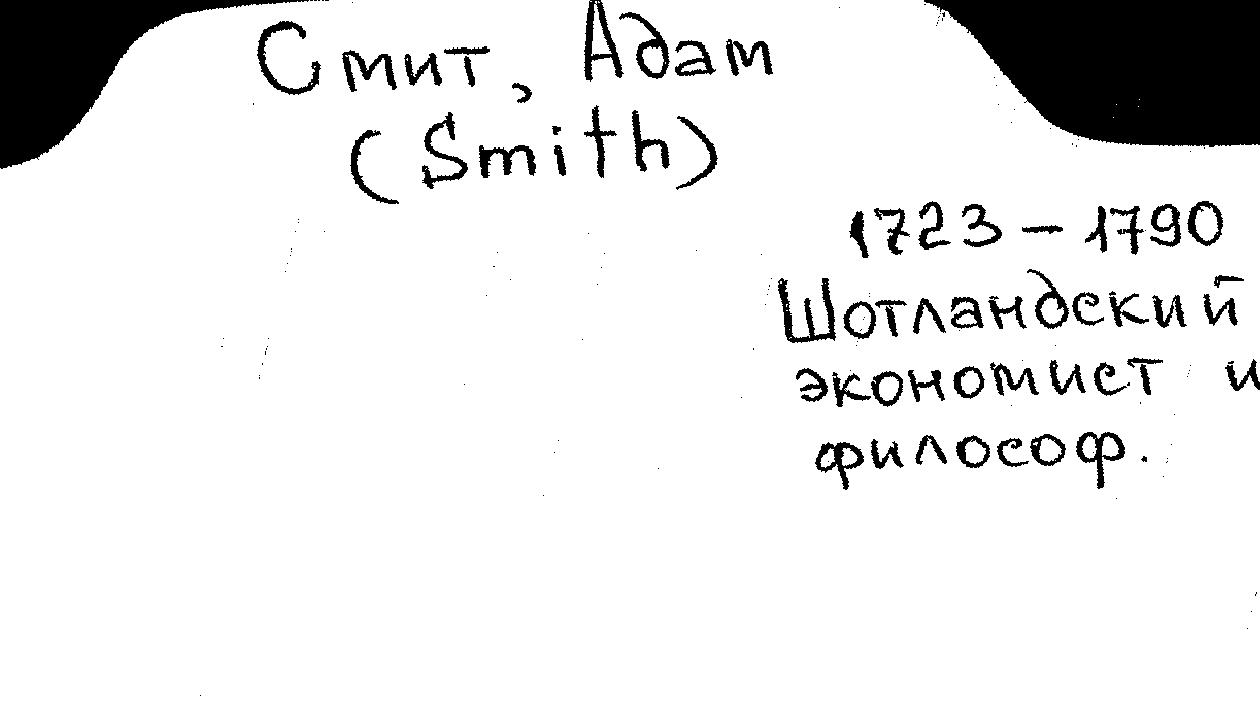 Смит, Адам
(Smith)
1723 – 1790
Шотландский
экономист и
философ.